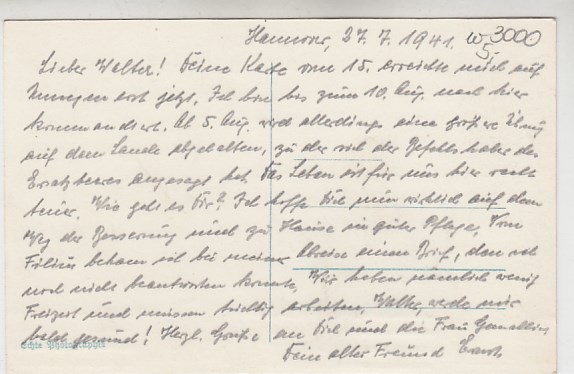 Hannover, 27. 7. 1941. W 3000
5.
Lieber Walter! Deine Karte vom 15. erreichte mich auf
erst jetzt. Ich bin bis zum 10. Aug. nach hier
kommandiert. Ab 5. Aug. wird allerdings eine größere Übung
auf dem Lande abgehalten, zu der sich der Befehlshaber des
Ersatzheeres angesagt hat. Das Leben ist für uns hier recht
teuer. Wie geht es Dir? Ich hoffe Dich nun wirklich auf dem
Weg der Besserung und zu Hause in guter Pflege. Vom
Filius bekam ich bei meiner Abreise einen Brief, den ich
noch nicht beantworten konnte. Wir haben nämlich wenig
Freizeit und müssen tüchtig arbeiten. Walter, werde mir
bald gesund! Herzl. Grüße an Dich und die Frau Gemahlin
Echte Photographie
Dein alter Freund